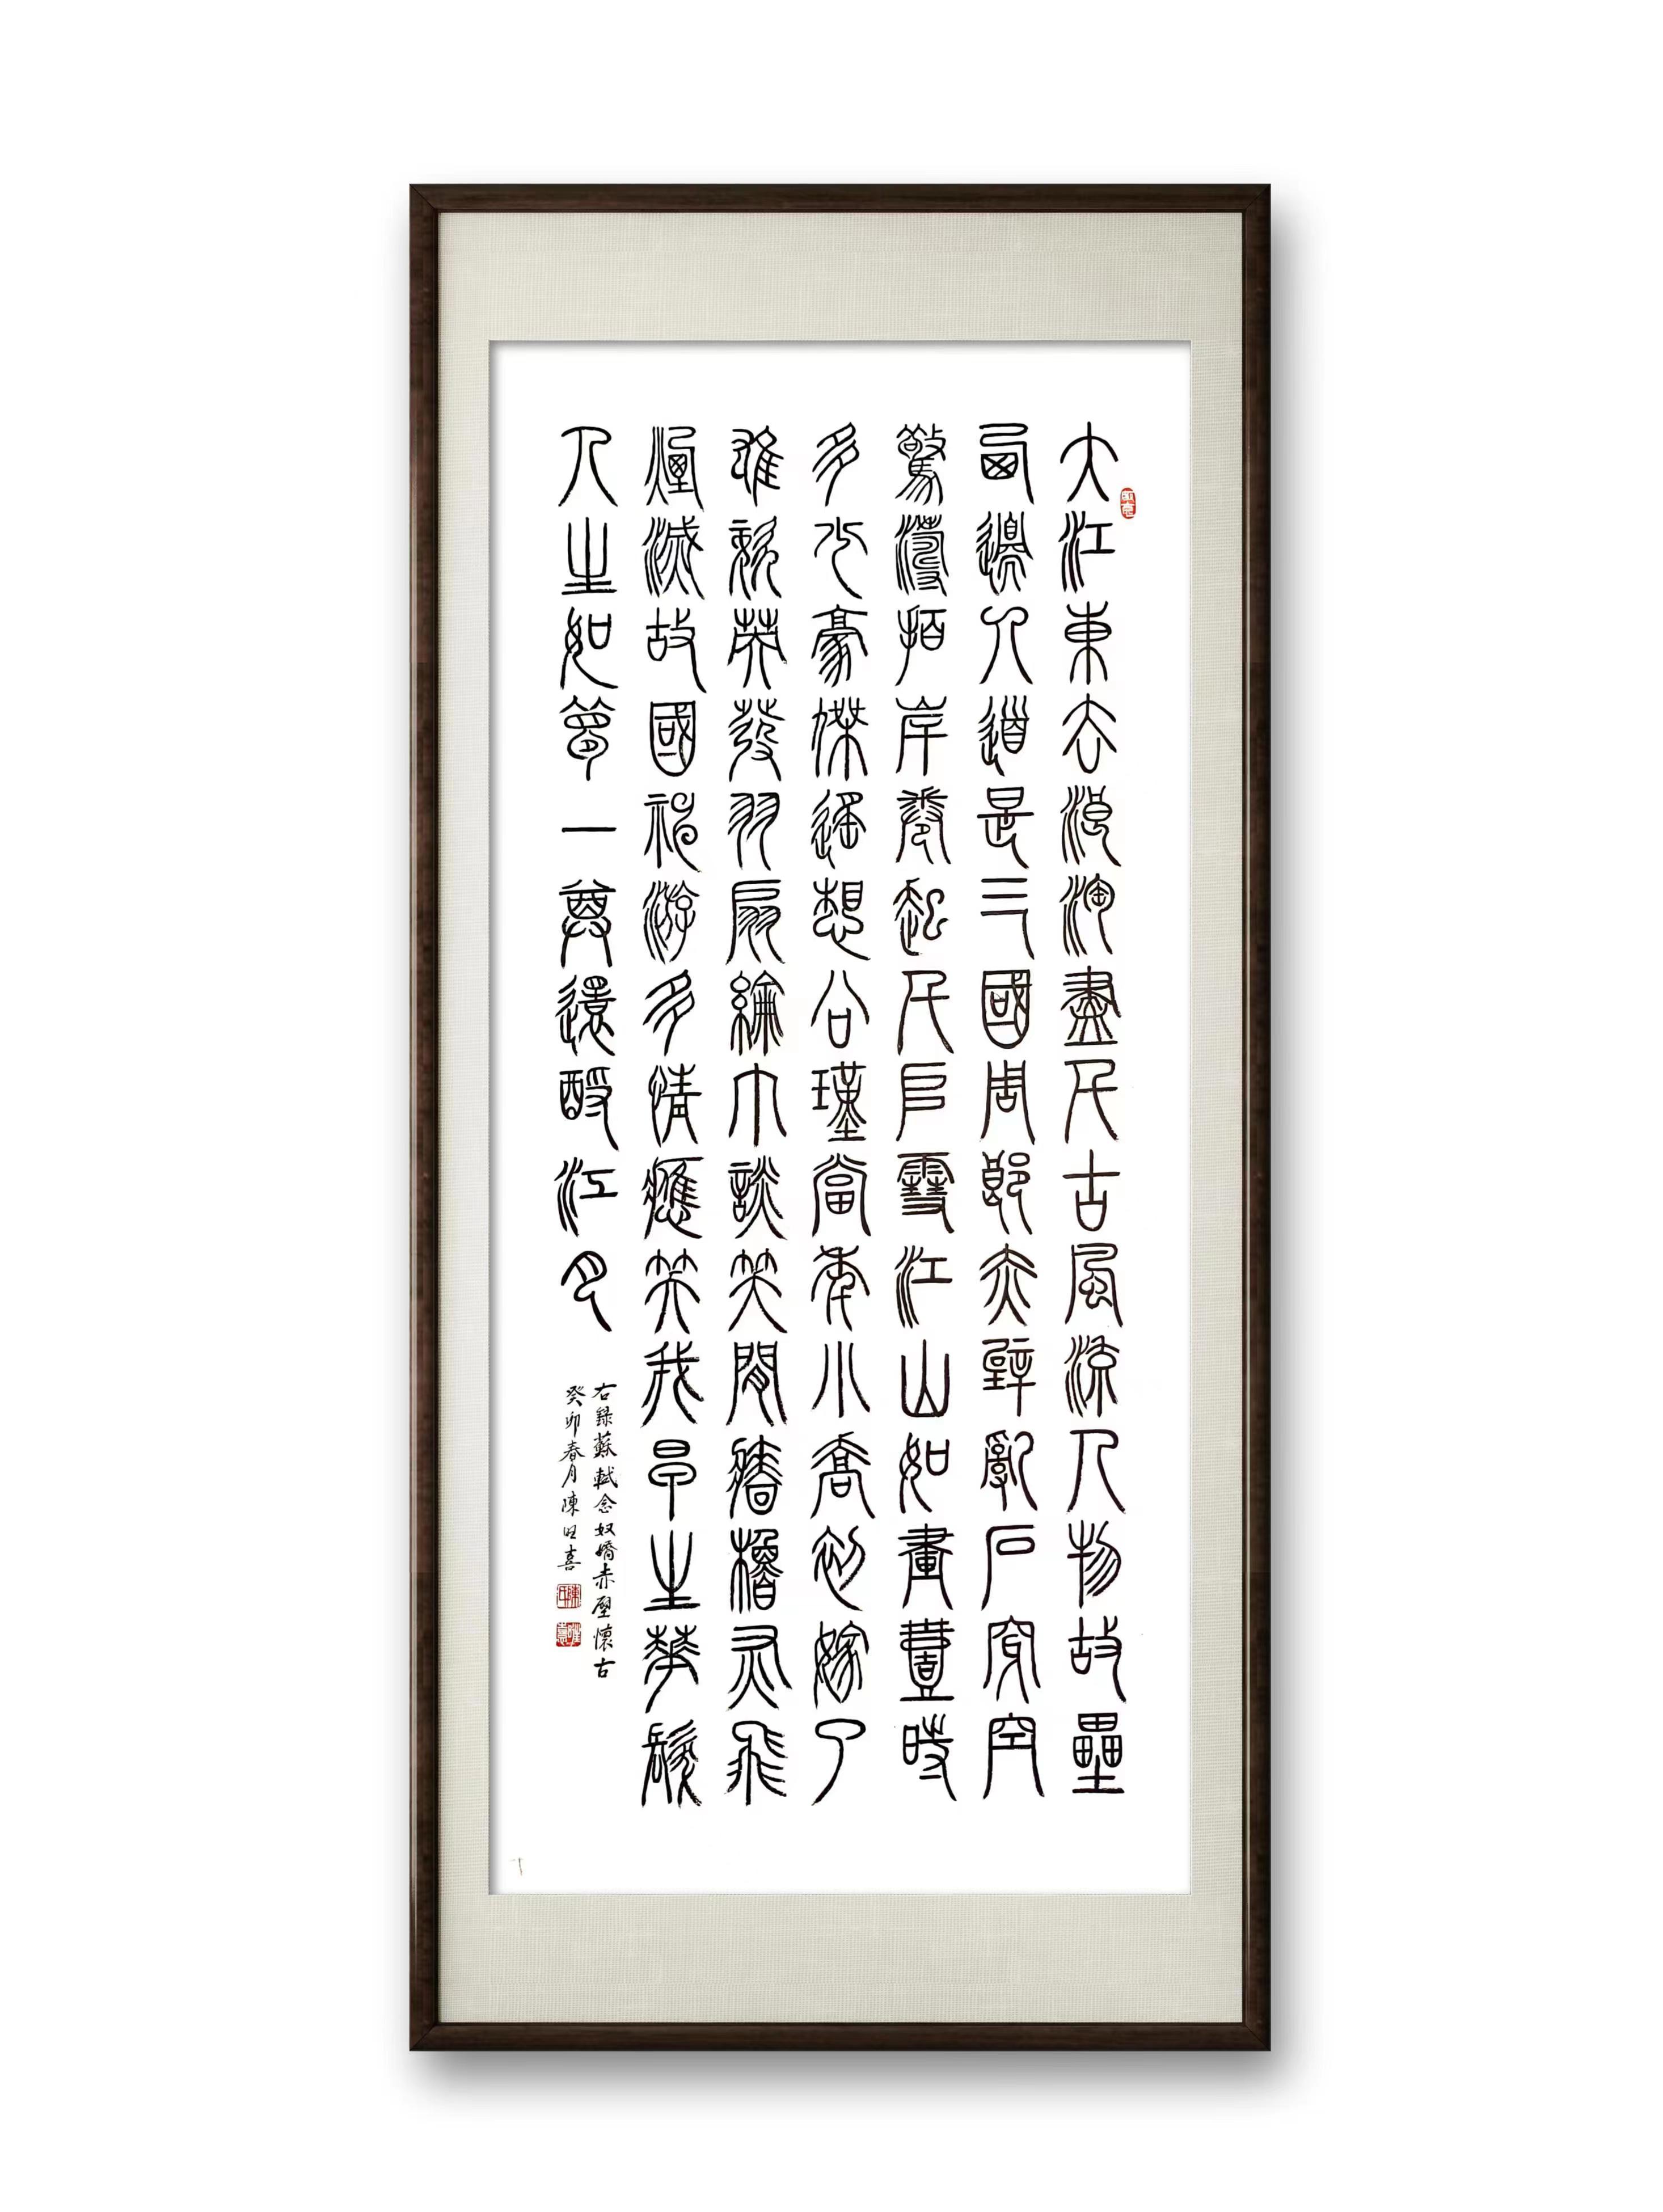 大江東去浪淘盡千古風流人物故壘
西邊人道是三國周郎赤壁亂石穿空
驚濤拍岸卷起千堆雪江山如畫壹時
多少豪傑遙想公瑾當年小喬初嫁了
雄姿英發羽扇綸巾談笑間檣櫓灰飛
煙滅故國神游多情應笑我早生華髮
人生如夢一尊還酹江月
右錄蘇軾念奴嬌赤壁懷古
癸卯春月陳旺喜